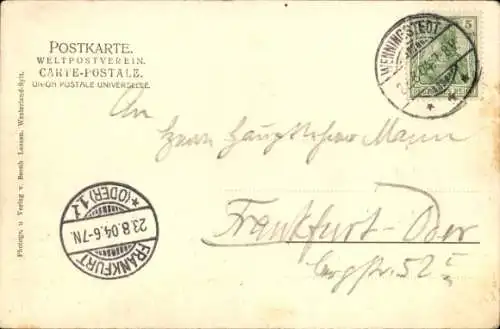 POSTKARTE.
WELTPOSTVEREIN.
CARTE-POSTALE.
UNION POSTALE UNIVERSELLE.
WENNINGSTEDT
5
An
Herrn Hauptlehrer Mann
Frankfurt-Oder
bergstr. 52 I
FRANKFURT
23.8.04.6-7N.
* (ODER) 1 1
Photogr. u Verlag v. Bernh Lassen, Westerland-Sylt.